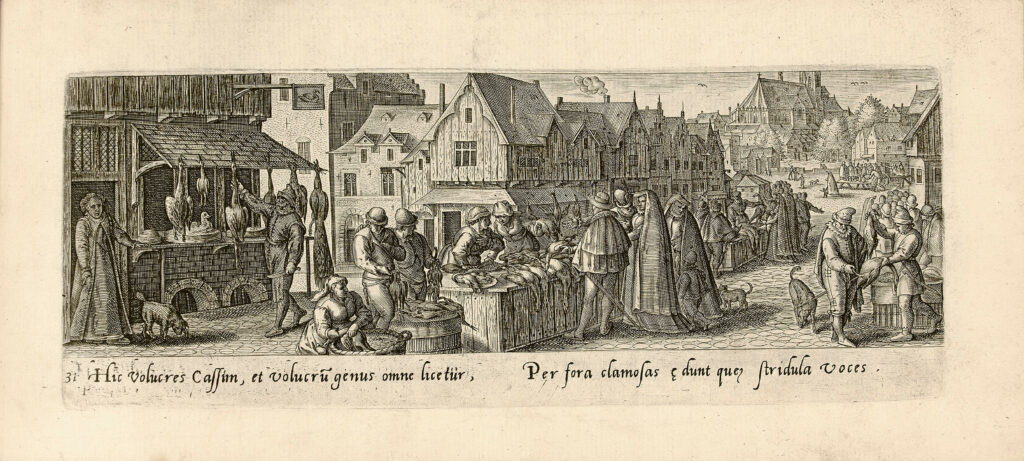 31 Hic volucres Cassim, et volucrũ genus omne licetur, Per fora clamosas ędunt quę stridula voces.